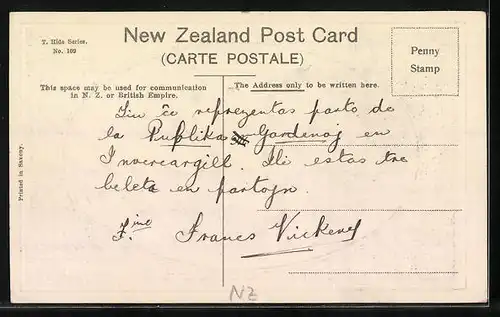 T. Hids Series.
No. 109
New Zealand Post Card
(CARTE POSTALE)
Penny
Stamp
This space may be used for communication
in N. Z. or British Empire.
The Address only to be written here.
Printed in Saxony.
ĉo reprezentas parto de
la Publika Gardenoj en
Invercargill. Ili estas tre
beleta en partojn.
Fino
Francs
NZ